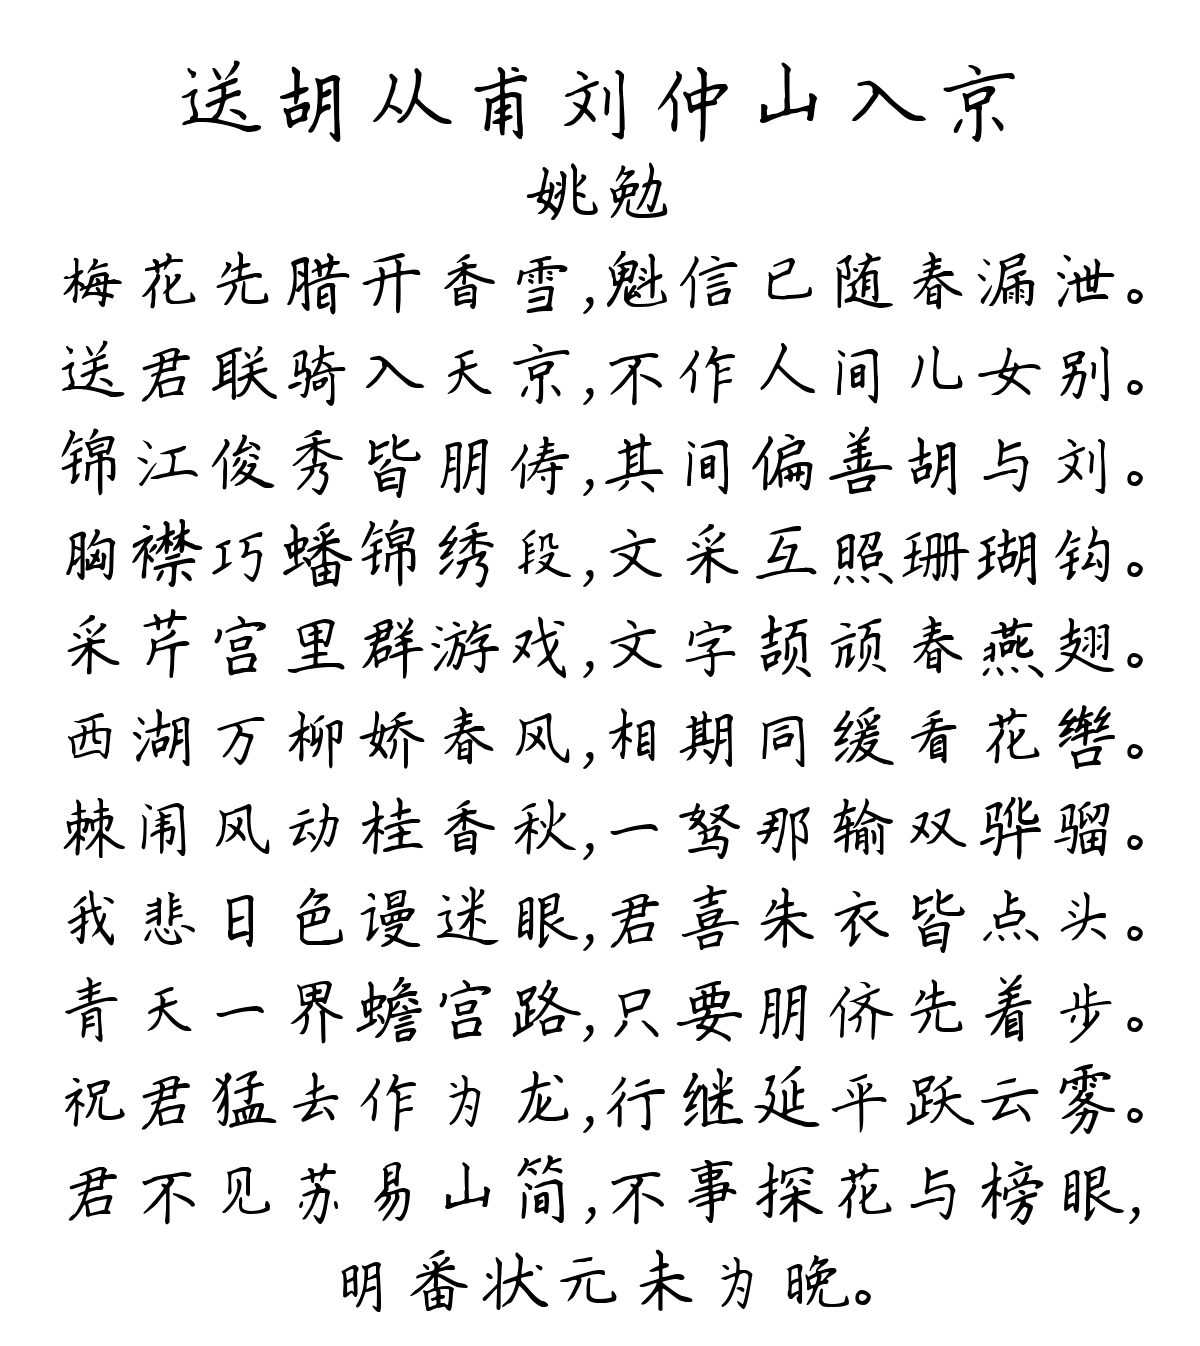 送胡从甫刘仲山入京
姚勉
梅花先腊开香雪,魁信已随春漏泄。
送君联骑入天京,不作人间儿女别。
锦江俊秀皆朋俦,其间偏善胡与刘。
胸襟巧蟠锦绣段,文采互照珊瑚钩。
采芹宫里群游戏,文字颉颃春燕翅。
西湖万柳娇春风,相期同缓看花辔。
棘闱风动桂香秋,一驽那输双骅骝。
我悲日色谩迷眼,君喜朱衣皆点头。
青天一界蟾宫路,只要朋侪先着步。
祝君猛去作为龙,行继延平跃云雾。
君不见苏易山简,不事探花与榜眼,
明番状元未为晚。